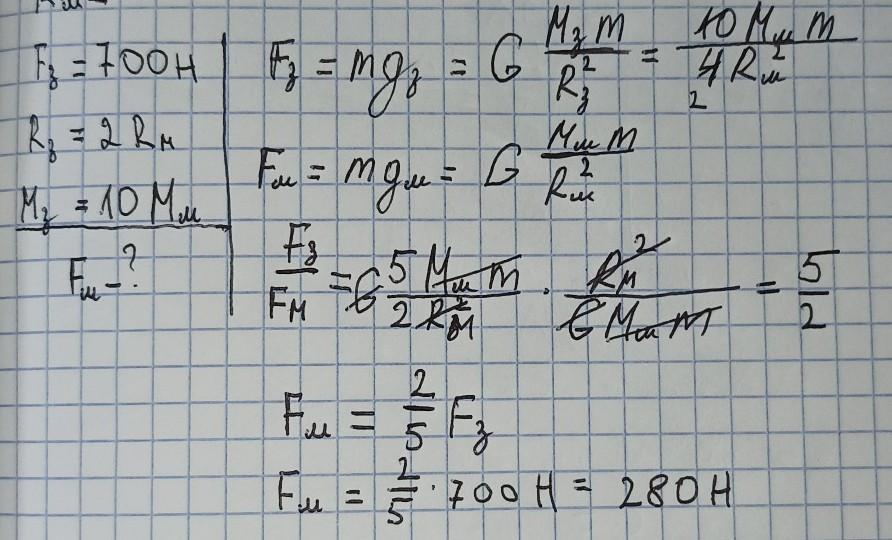 F₃ = 700 Н
R₃ = 2 Rм
M₃ = 10 Mм
Fм - ?
F₃ = mg₃ = G M₃ m / R₃² = 10 Mм m / 4 Rм²
2
Fм = mgм = G Mм m / Rм²
F₃ / Fм = G 5 Mм m / 2 Rм² · Rм² / G Mм m = 5 / 2
Fм = 2/5 F₃
Fм = 2/5 · 700 Н = 280 Н